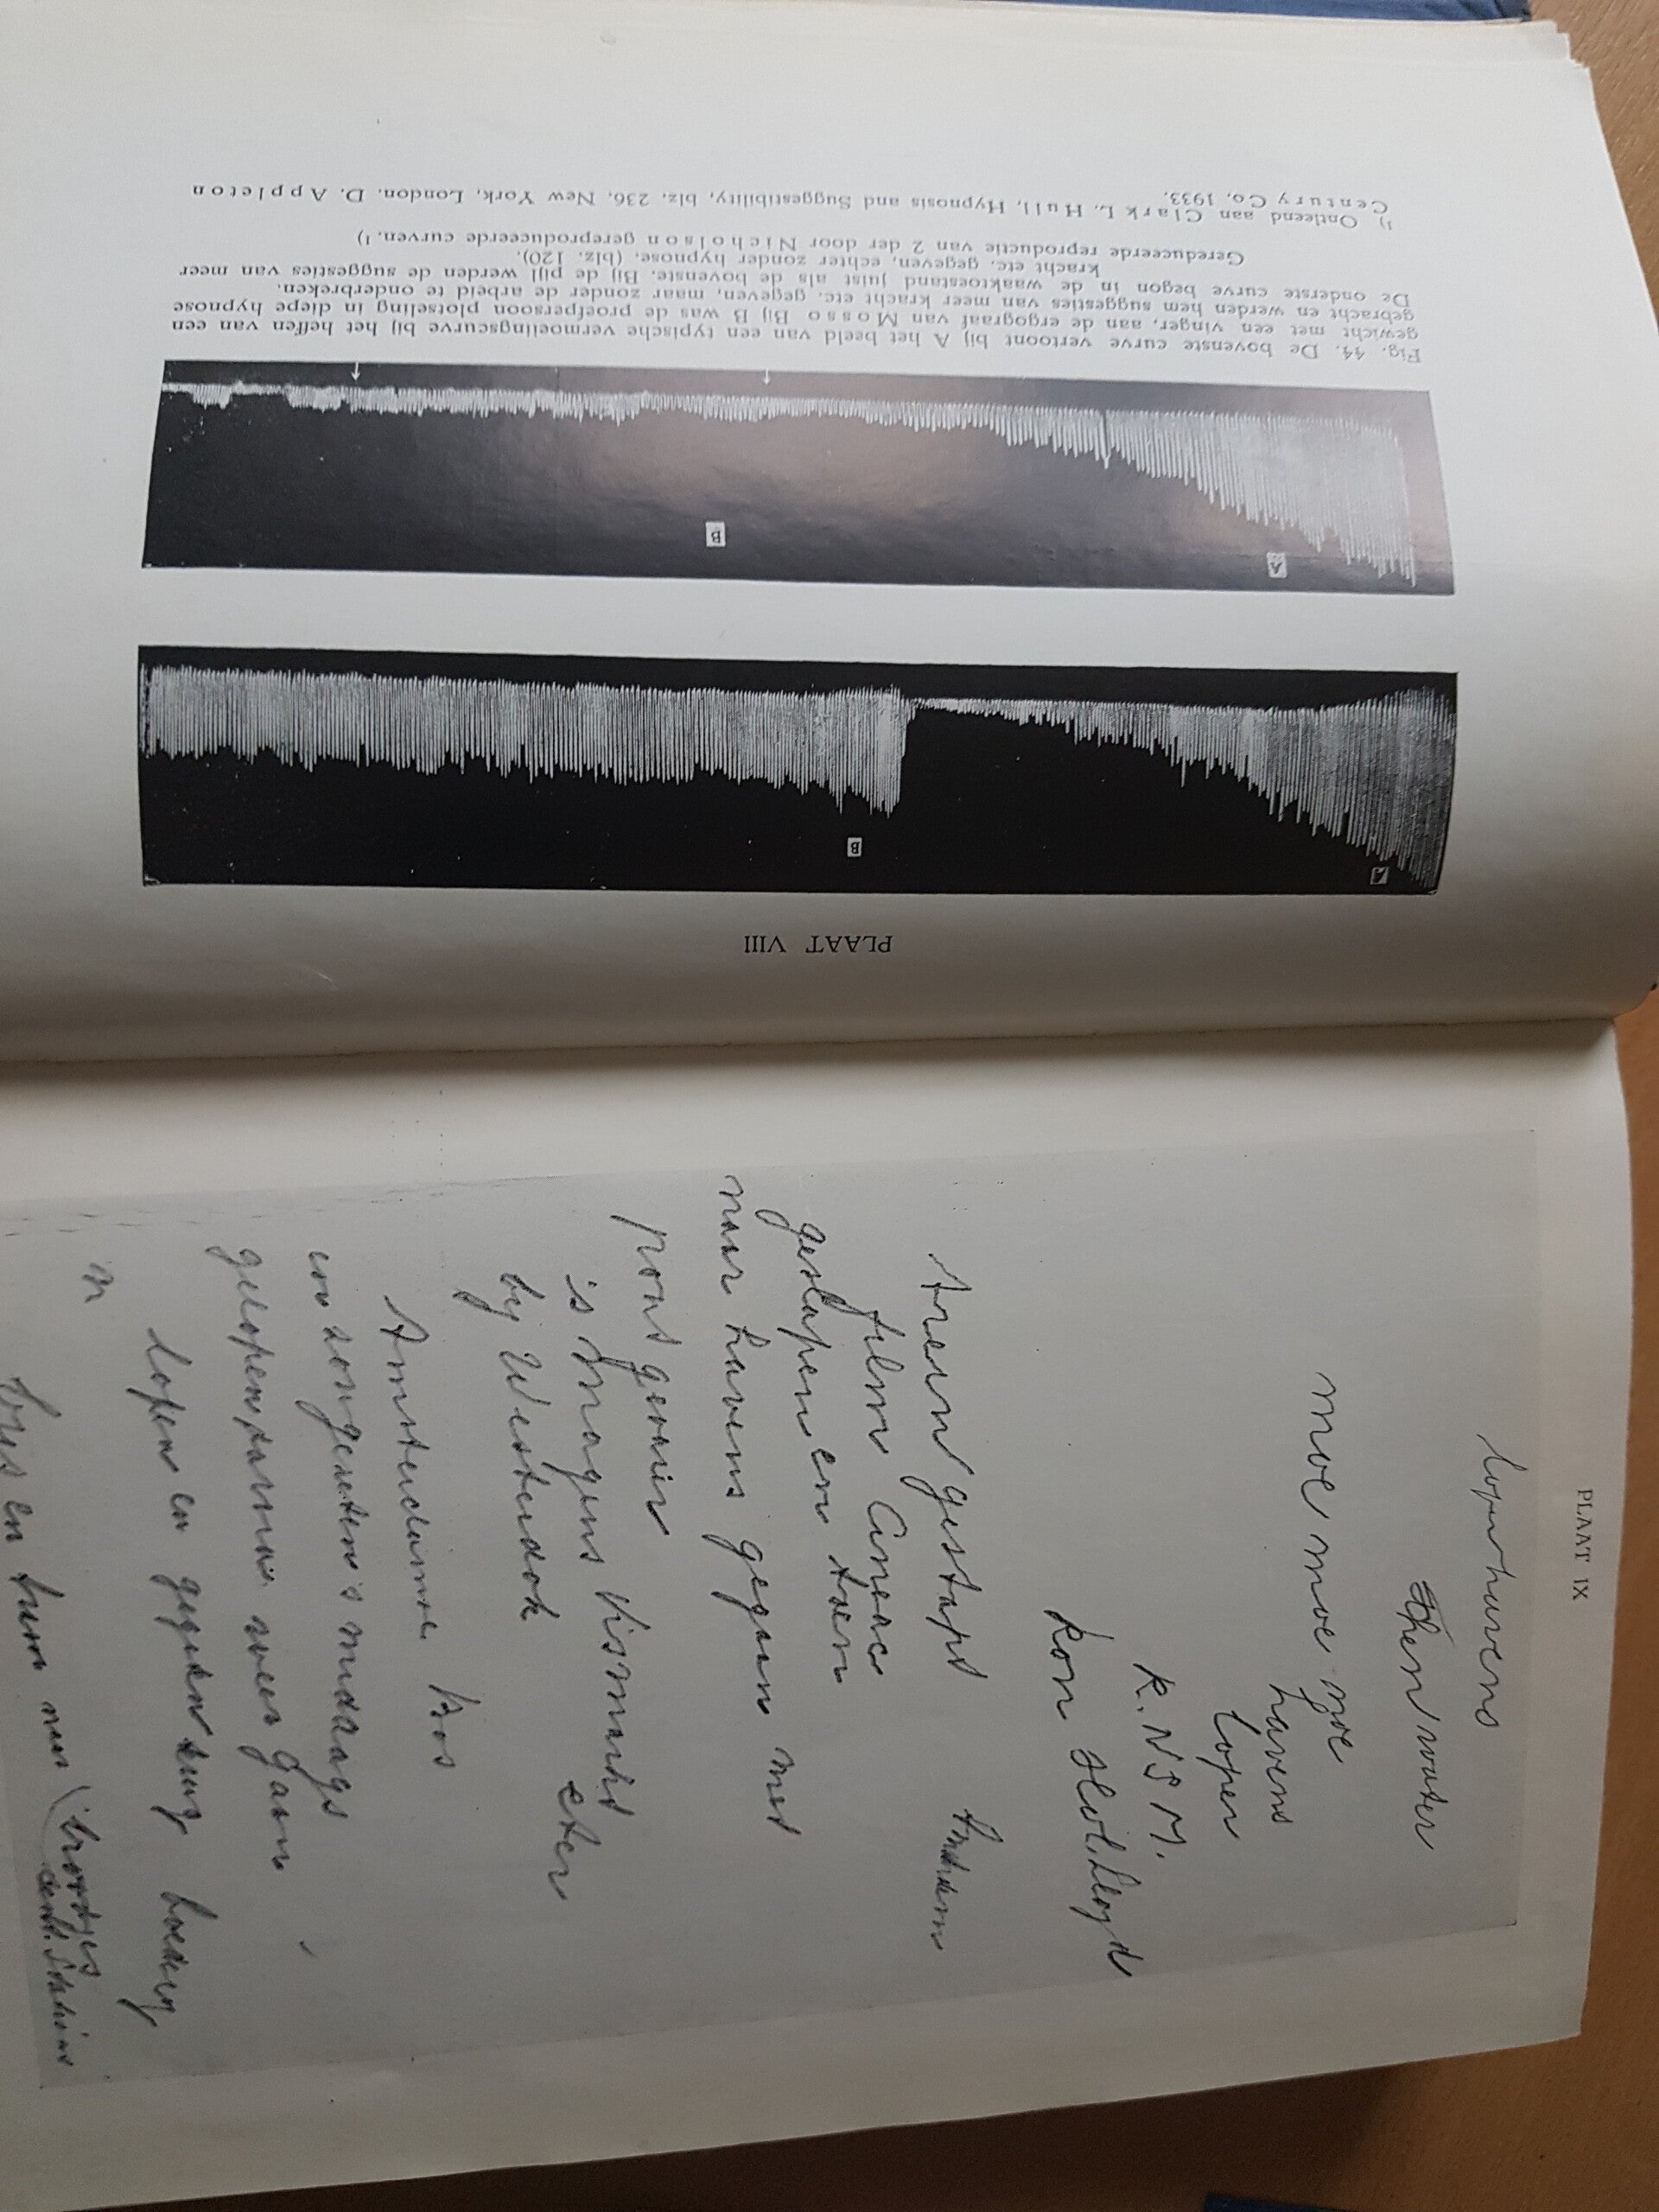 PLAAT VIII
A
B
A
B
Fig. 44. De bovenste curve vertoont bij A het beeld van een typische vermoeiingscurve bij het heffen van een
gewicht met een vinger, aan de ergograaf van Mosso Bij B was de proefpersoon plotseling in diepe hypnose
gebracht en werden hem suggesties van meer kracht etc. gegeven, maar zonder de arbeid te onderbreken.
De onderste curve begon in de waaktoestand juist als de bovenste. Bij de pijl werden de suggesties van meer
kracht etc. gegeven, echter zonder hypnose. (blz. 120).
Gereduceerde reproductie van 2 der door Nicholson gereproduceerde curven.¹)
¹) Ontleend aan Clark L. Hull, Hypnosis and Suggestibility, blz. 236. New York, London. D. Appleton
Century Co, 1933.
PLAAT IX
lopen havens
water
moe moe moe
havens
lopen
K.N.S.M.
Kon Holl. Lloyd
trein gestapt
film Cineac
geslapen en toen
naar havens gegaan met
pont
is smagens vismarkt
eten
by Westerdok
Amsterdamse Bos
en zongezeten s middags
gelopen weer gaan
lopen en gegeten
n